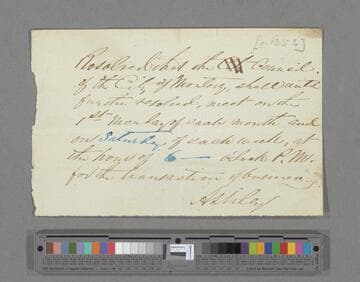 [c. 1853]
Resolved that the Council
of the City of Monterey, shall until
further resolved, meet on the
1st Monday of each month and
on Saturday of each week, at
the hour of 6 — oclock P.M.
for the transaction of business
Ashley